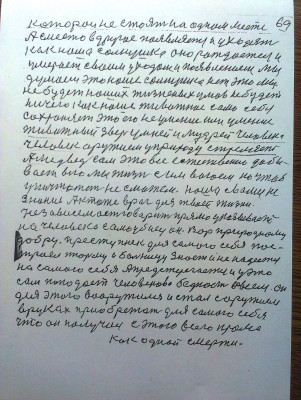 которой не стоят на одном месте 69
А вместо другое появляется и уходят
как наше солнушко оно рождается и
умерает своим уходом и появлением. Мы
думаем это наше солнушко нет этому
не будет наших жизненых умов не будет
ничего как наше животное само себя
сохраняет это его не умение или умение
животный зверь умней и мудрей человека
человек оружием у природу стреляет
А медведь сам это все естественно добы-
вает его мы жизни с им воюем но чтоб
уничтожет не сможем. наша с вами не
знание А кто же враг для твоей жизни.
Независемость говорит прямо указывает
на человека самоубиец он. Вор природному
добру. преступник для самого себя пос-
троел тюрму и больницу знает и не надеется
на самого себя А предстерегается и у это
сам попадает человеково бедность овсем. он
для этого вооружился и стал с оружием
в руках приобретат для самого себя
что он получил с этого всего кроме
как одной смерти.